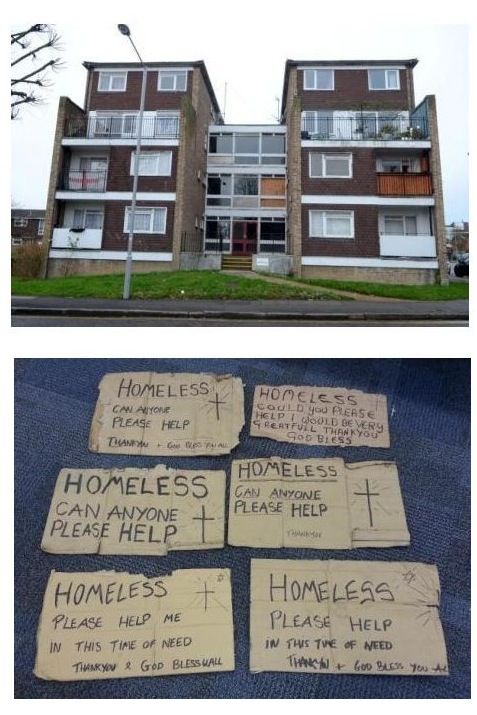 HOMELESS
CAN ANYONE
PLEASE HELP
THANKYOU + GOD BLESS YOU ALL
HOMELESS
COULD YOU PLEASE
HELP I WOULD BE VERY
GREATFULL THANKYOU
GOD BLESS
HOMELESS
CAN ANYONE
PLEASE HELP
HOMELESS
CAN ANYONE
PLEASE HELP
THANKYOU
HOMELESS
PLEASE HELP ME
IN THIS TIME OF NEED
THANKYOU & GOD BLESS UALL
HOMELESS
PLEASE HELP
IN THIS TIME OF NEED
THANKYU + GOD BLESS YOU AL